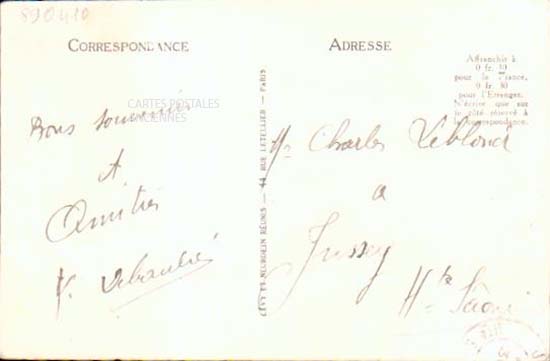 890410
CORRESPONDANCE
CARTES POSTALES
ANCIENNES
Bons souvenirs
et
Amitiés
LEVY ET NEURDEIN RÉUNIS — 44, RUE LETELLIER — PARIS
ADRESSE
Affranchir à
0 fr. 10
pour la France,
0 fr. 30
pour l'Etranger.
N'écrire que sur
le côté réservé à
la correspondance.
Mr Charles Leblond
a
Jussey
Hte Saone